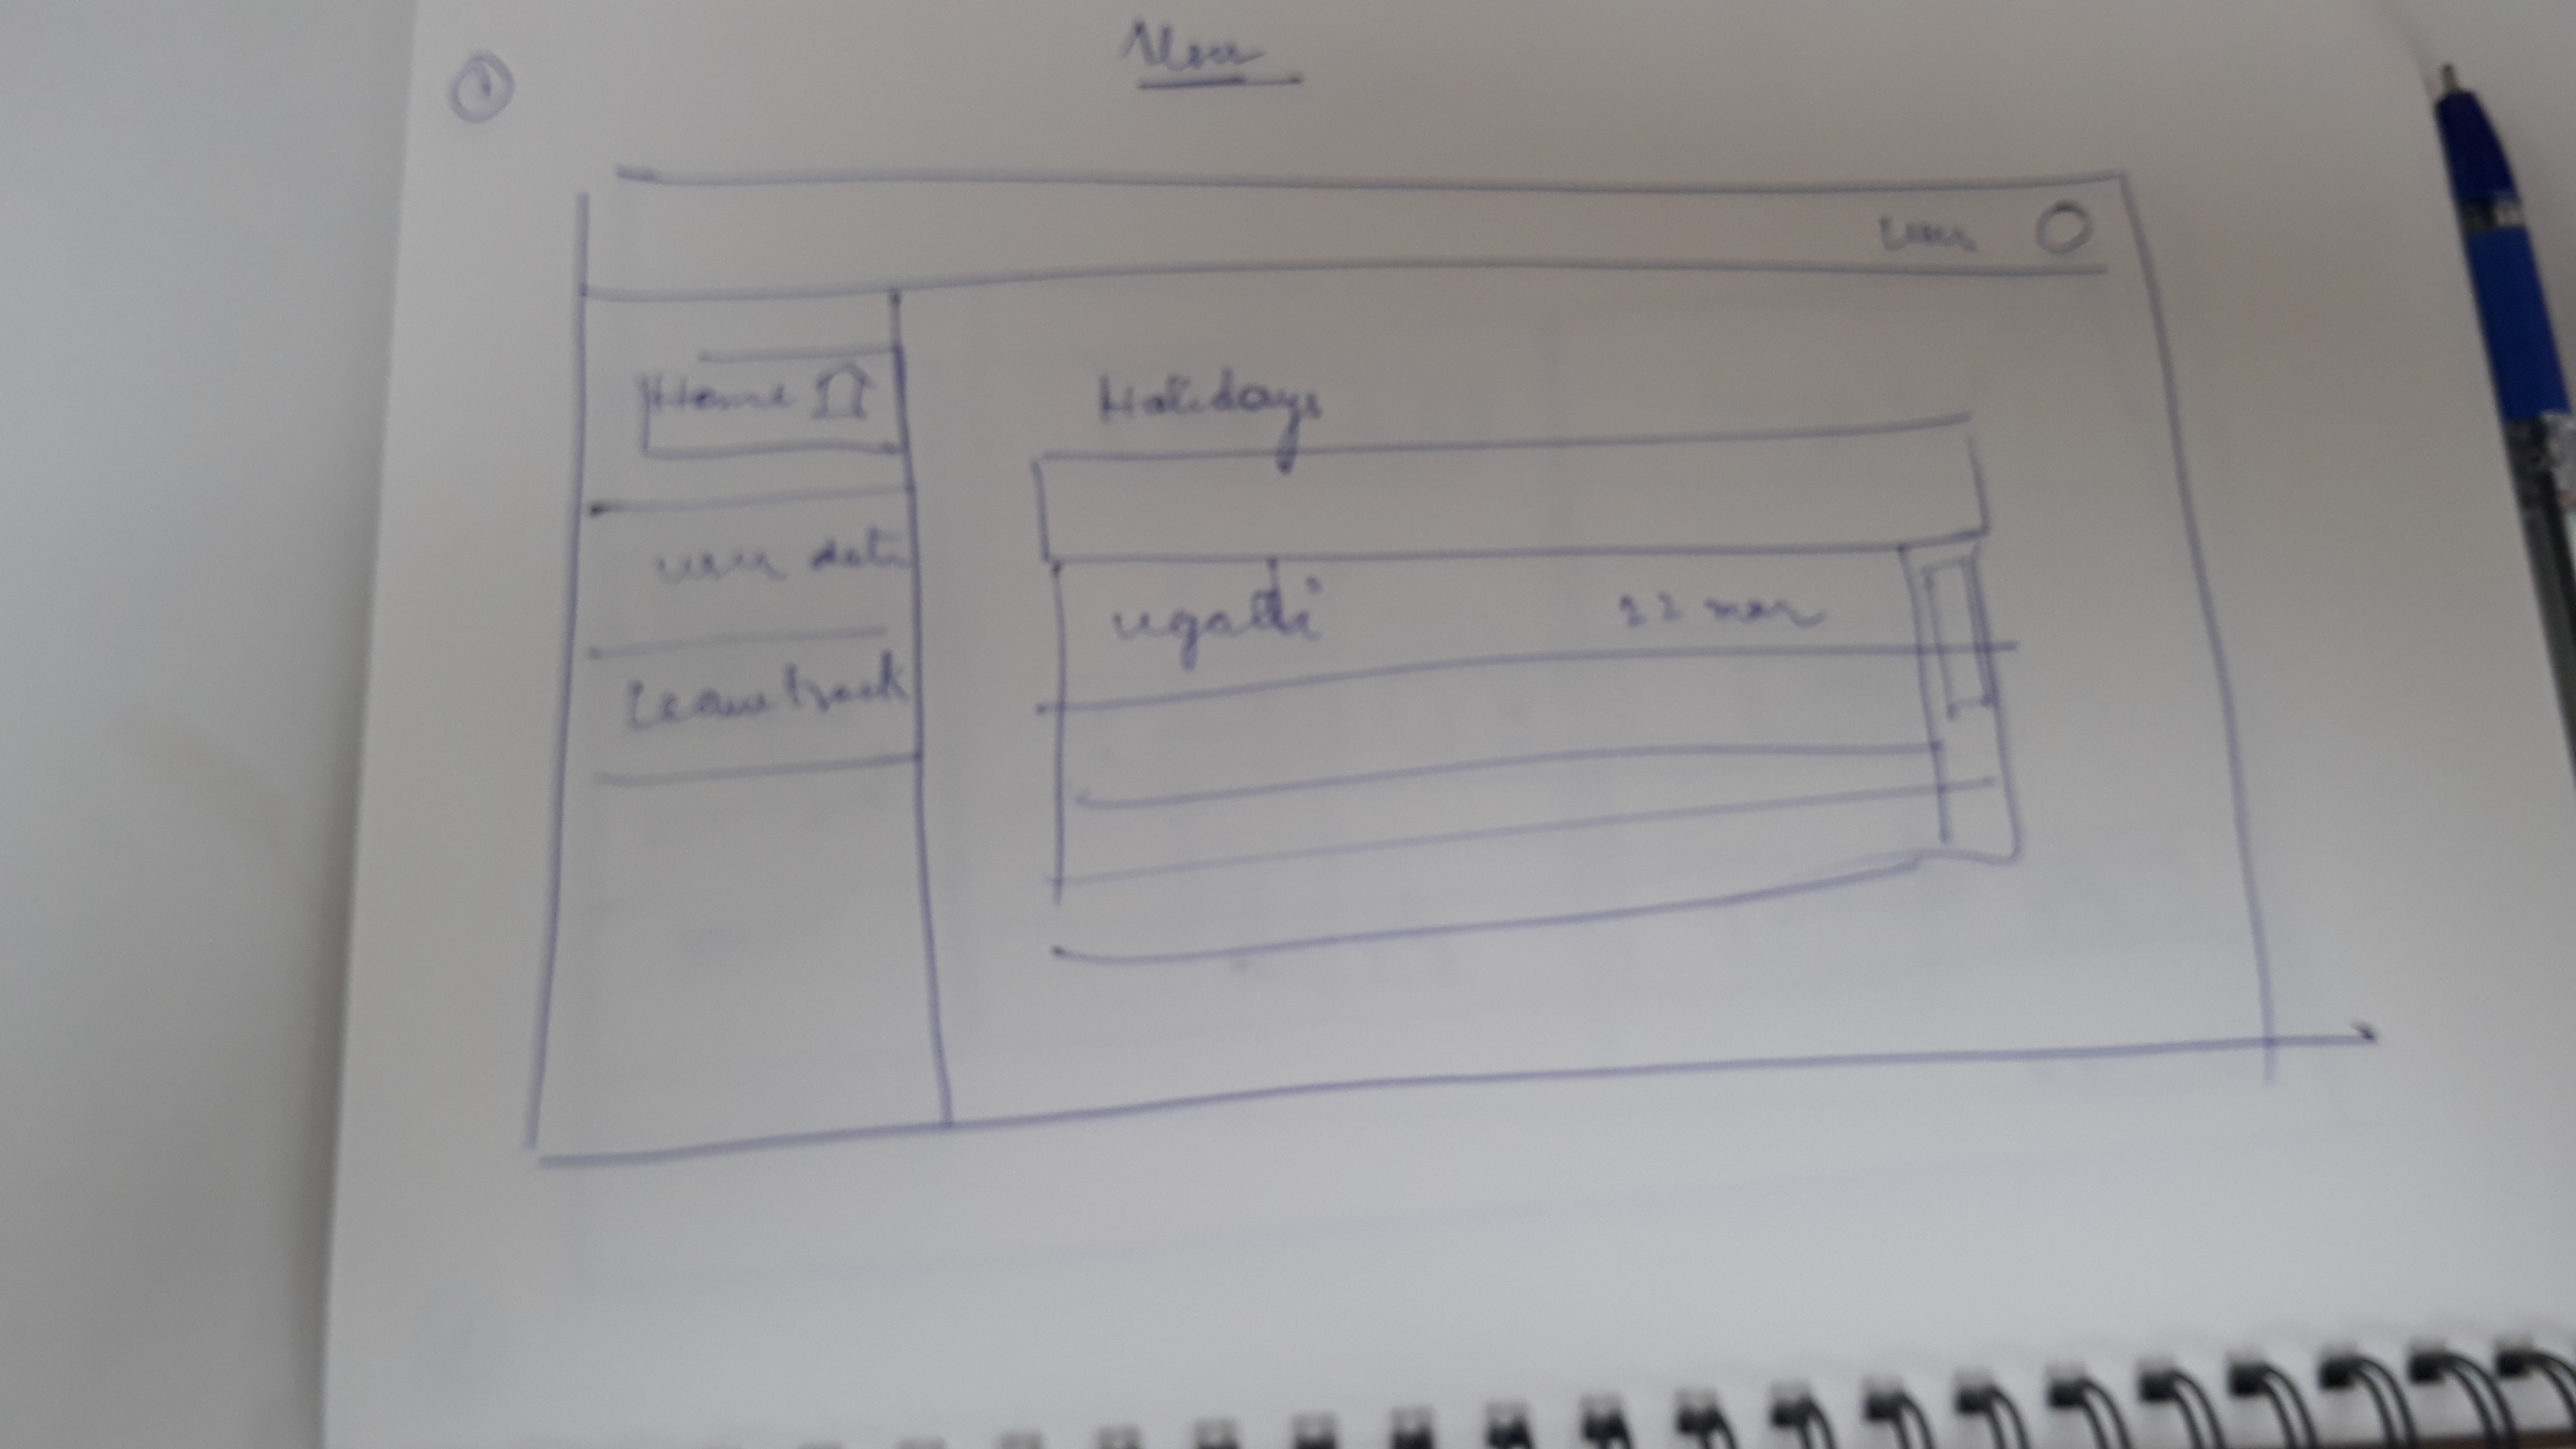 1
User
User
Home
user data
Leave track
Holidays
ugadi 22 mar